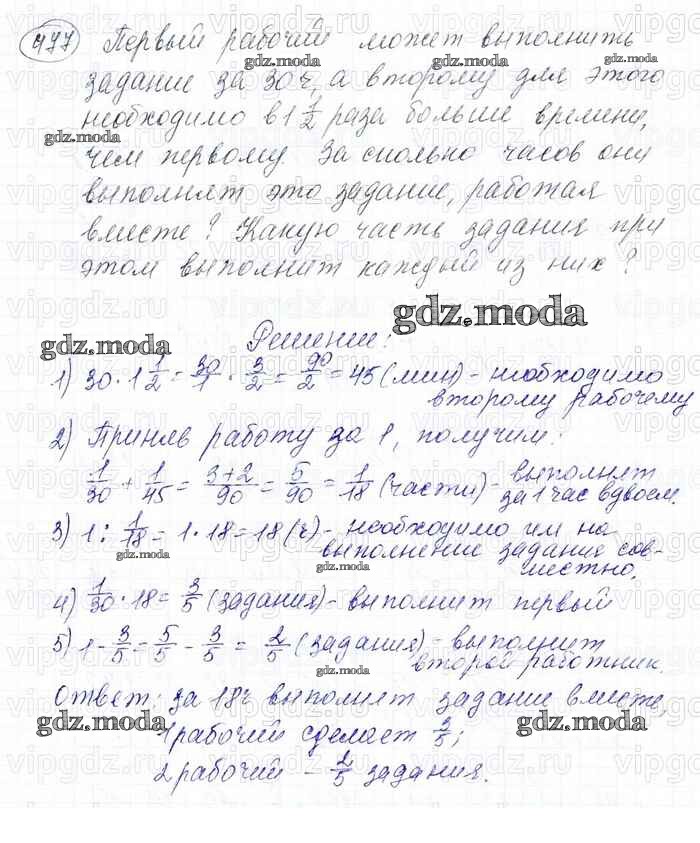 477 Первый рабочий может выполнить
задание за 30 ч, а второму для этого
необходимо в 1 1/2 раза больше времени,
чем первому. За сколько часов они
выполнят это задание, работая
вместе? Какую часть задания при
этом выполнит каждый из них?
Решение:
1) 30 · 1 1/2 = 30/1 · 3/2 = 90/2 = 45 (мин) - необходимо
второму рабочему
2) Приняв работу за 1, получим:
1/30 + 1/45 = 3+2/90 = 5/90 = 1/18 (части) - выполнят
за 1 час вдвоем.
3) 1 : 1/18 = 1 · 18 = 18 (ч) - необходимо им на
выполнение задания сов-
местно.
4) 1/30 · 18 = 3/5 (задания) - выполнит первый
5) 1 - 3/5 = 5/5 - 3/5 = 2/5 (задания) - выполнит
второй работник.
Ответ: за 18 ч выполнят задание вместе,
1 рабочий сделает 3/5;
2 рабочий - 2/5 задания.
gdz.moda
vipgdz.ru